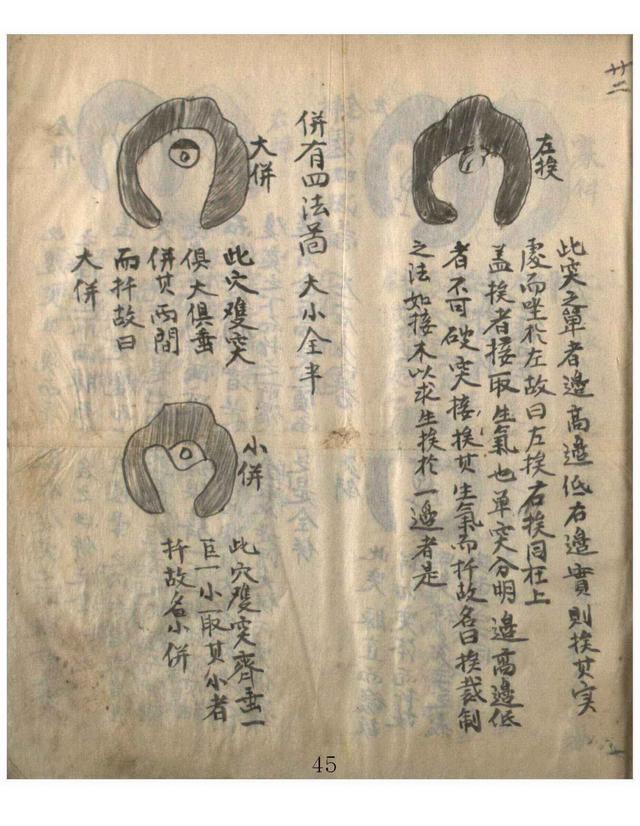 廿二
左挨
此突之單者邊高邊低右邊實則挨其实
處而坐於左故曰左挨右挨同在上
盖挨者接取生氣也单突分明邊高邊低
者不可破突接挨其生氣而扦故名曰挨裁制
之法如接木以求生挨於一邊者是
併有四法啚 大小全半
大併
此穴雙突
俱大俱垂
併其两間
而扦故曰
大併
小併
此穴雙突齊垂一
巨一小取其小者
扦故名小併
45